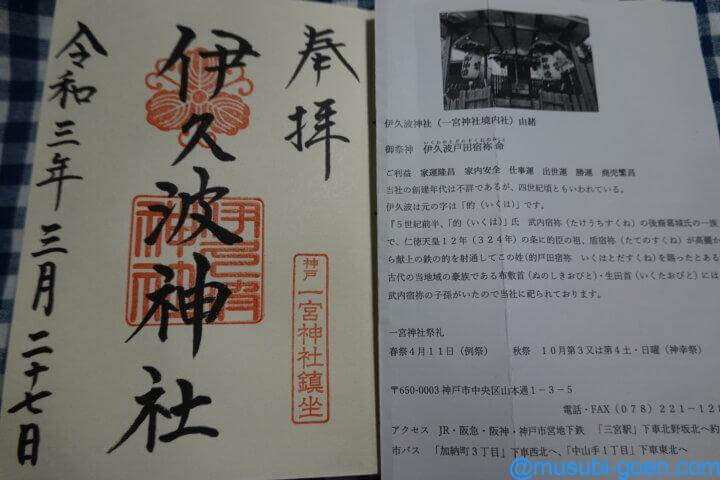 奉拝
伊久波神社
令和三年三月二十七日
伊久波
神社
神戸
一宮神社鎮坐
伊久波神社（一宮神社境内社）由緒
御祭神 伊久波戸田宿祢命
ご利益 家運隆昌 家内安全 仕事運 出世運 勝運 商売繁昌
当社の創建年代は不詳であるが、四世紀頃ともいわれている。
伊久波は元の字は「的（いくは）」です。
『５世紀前半、「的（いくは）」氏 武内宿祢（たけうちすくね）の後裔葛城氏の一族
で、仁徳天皇１２年（３２４年）の条に的臣の祖、盾宿祢（たてのすくね）が高麗か
ら献上の鉄の的を射通してこの姓(的戸田宿祢 いくはとだすくね)を賜ったとある
古代の当地域の豪族である布敷首（ぬのしきおびと）・生田首（いくたおびと）には
武内宿祢の子孫がいたので当社に祀られております。
一宮神社祭礼
春祭４月１１日（例祭） 秋祭 １０月第３又は第４土・日曜（神幸祭）
〒650-0003 神戸市中央区山本通１－３－５
電話・FAX（０７８）２２１－１２
アクセス JR・阪急・阪神・神戸市営地下鉄 「三宮駅」下車北野坂北へ約
市バス 「加納町３丁目」下車西北へ、「中山手１丁目」下車東北へ
@musubi-goen.com